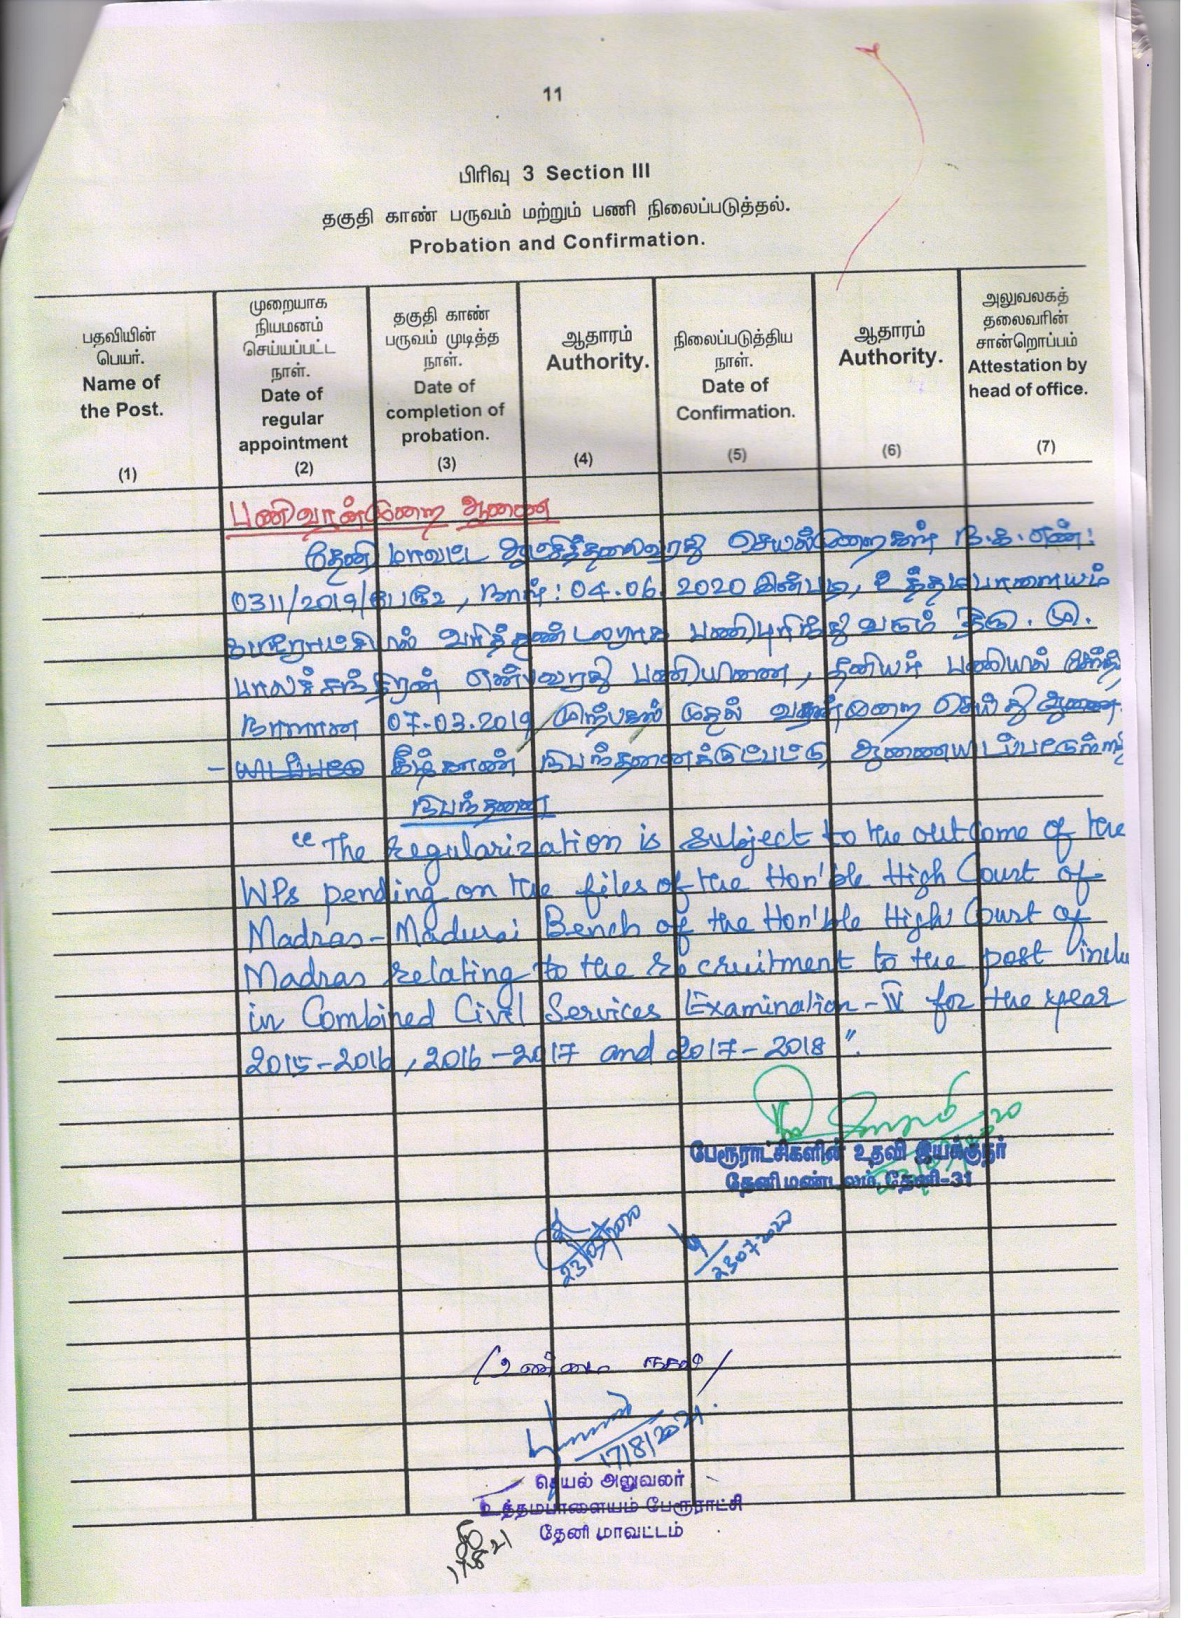 11
பிரிவு 3 Section III
தகுதி காண் பருவம் மற்றும் பணி நிலைப்படுத்தல்.
Probation and Confirmation.
பதவியின்
பெயர்.
Name of
the Post.
(1)
முறையாக
நியமனம்
செய்யப்பட்ட
நாள்.
Date of
regular
appointment
(2)
தகுதி காண்
பருவம் முடித்த
நாள்.
Date of
completion of
probation.
(3)
ஆதாரம்
Authority.
(4)
நிலைப்படுத்திய
நாள்.
Date of
Confirmation.
(5)
ஆதாரம்
Authority.
(6)
அலுவலகத்
தலைவரின்
சான்றொப்பம்
Attestation by
head of office.
(7)
பணிவரன்முறை ஆணை
தேனி மாவட்ட ஆட்சித்தலைவரது செயல்முறைகள் ந.க.எண்:
0311/2019/பேரூ2, நாள்: 04.06.2020 இன்படி, உத்தமபாளையம்
பேரூராட்சியில் வரித்தண்டலராக பணிபுரிந்து வரும் திரு. மு.
பாலச்சந்திரன் என்பவரது பணியினை, அன்னார் பணியில் சேர்ந்த
நாளான 07-03.2019 முற்பகல் முதல் வரன்முறை செய்து ஆணை
கீழ்காண் நிபந்தனைக்குட்பட்டு ஆணையிடப்படுகிறது
நிபந்தனை
"The Regularization is subject to the outcome of the
WPs pending on the files of the Hon'ble High Court of
Madras-Madurai Bench of the Hon'ble High Court of
Madras relating to the recruitment to the post inclu
in Combined Civil Services Examination-IV for the year
2015-2016, 2016-2017 and 2017-2018".
பேரூராட்சிகளின் உதவி இயக்குநர்
தேனி மண்டலம் தேனி-31
23/07/2020
23072020
/உண்மை நகல்/
17/8/2021.
செயல் அலுவலர்
உத்தமபாளையம் பேரூராட்சி
தேனி மாவட்டம்
17.8.21